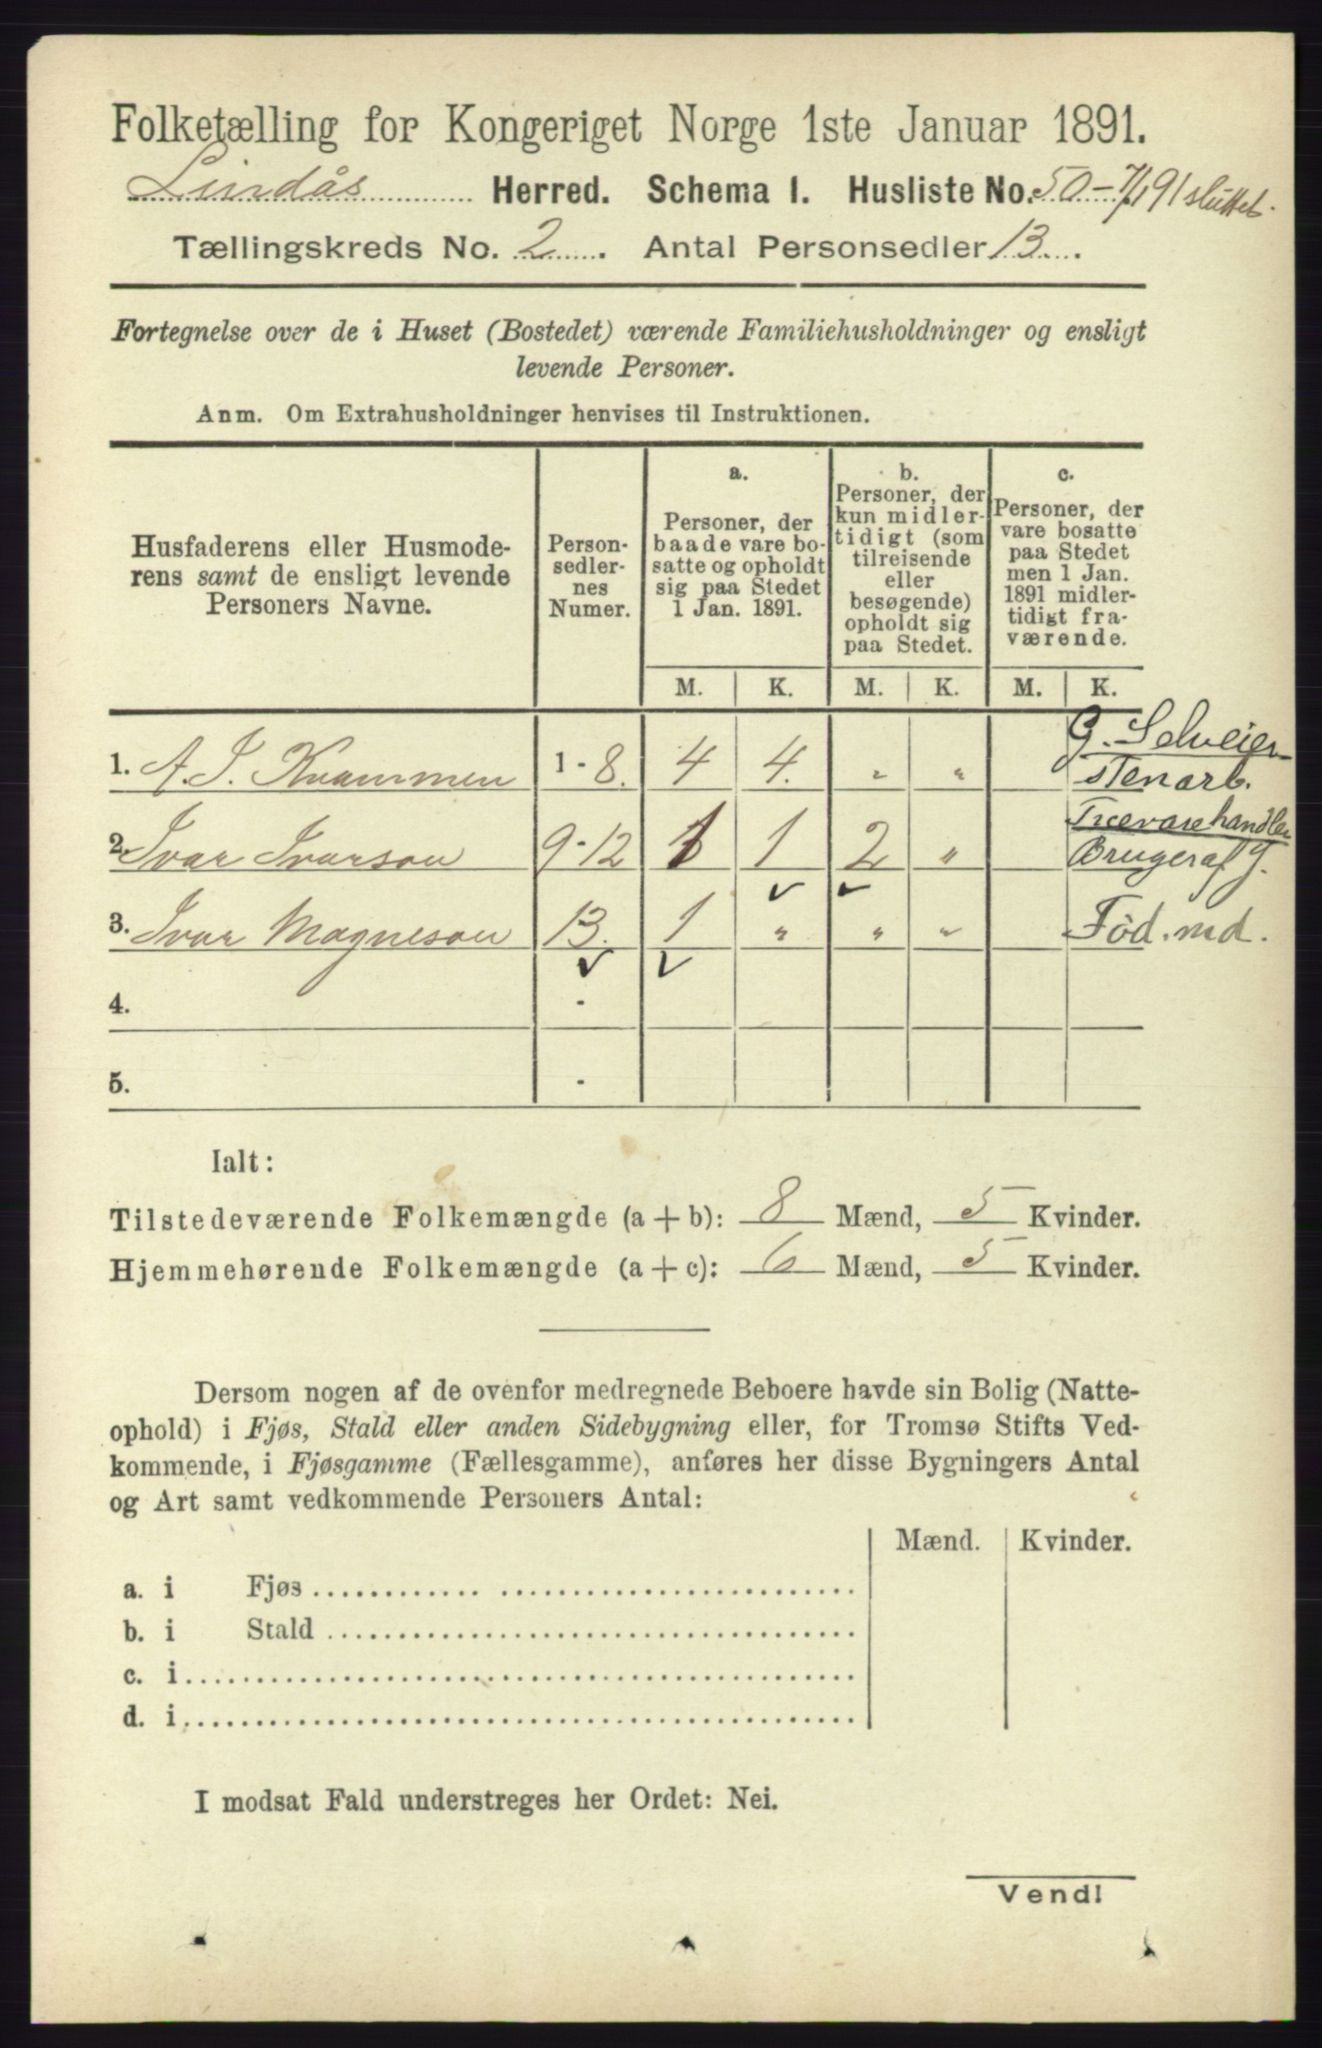 Folketælling for Kongeriget Norge 1ste Januar 1891.
Lindås Herred. Schema I. Husliste No. 50 - 7/1 91 sluttet.
Tællingskreds No. 2. Antal Personsedler 13.
Fortegnelse over de i Huset (Bostedet) værende Familiehusholdninger og ensligt
levende Personer.
Anm. Om Extrahusholdninger henvises til Instruktionen.
Husfaderens eller Husmode-
rens samt de ensligt levende
Personers Navne.
Person-
sedler-
nes
Numer.
a.
Personer, der
baade vare bo-
satte og opholdt
sig paa Stedet
1 Jan. 1891.
b.
Personer, der
kun midler-
tidigt (som
tilreisende
eller
besøgende)
opholdt sig
paa Stedet.
c.
Personer, der
vare bosatte
paa Stedet
men 1 Jan.
1891 midler-
tidigt fra-
værende.
M. K. M. K. M. K.
G. Selveier
1. A. I. Kvammen 1 - 8. 4 4. " " stenarb.
Trævarehandler
2. Ivar Ivarson 9 - 12 1 1 2 " Bruger af J.
3. Ivar Magneson 13. 1 " " " Föd. md.
4. -
5. -
Ialt:
Tilstedeværende Folkemængde (a + b): 8 Mænd, 5 Kvinder.
Hjemmehørende Folkemængde (a + c): 6 Mænd, 5 Kvinder.
Dersom nogen af de ovenfor medregnede Beboere havde sin Bolig (Natte-
ophold) i Fjøs, Stald eller anden Sidebygning eller, for Tromsø Stifts Ved-
kommende, i Fjøsgamme (Fællesgamme), anføres her disse Bygningers Antal
og Art samt vedkommende Personers Antal:
Mænd. Kvinder.
a. i Fjøs
b. i Stald
c. i
d. i
I modsat Fald understreges her Ordet: Nei.
Vend!